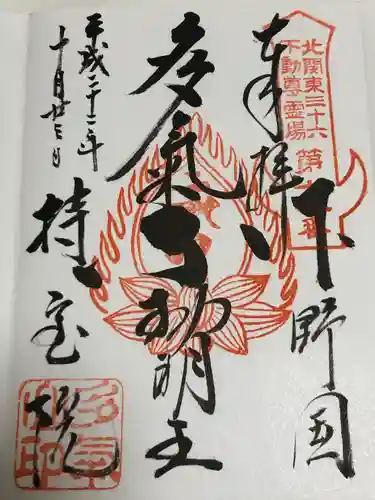 奉拝
下野国
北関東三十六
不動尊霊場
多氣不動明王
平成二十二年
十月廿三日
持宝院